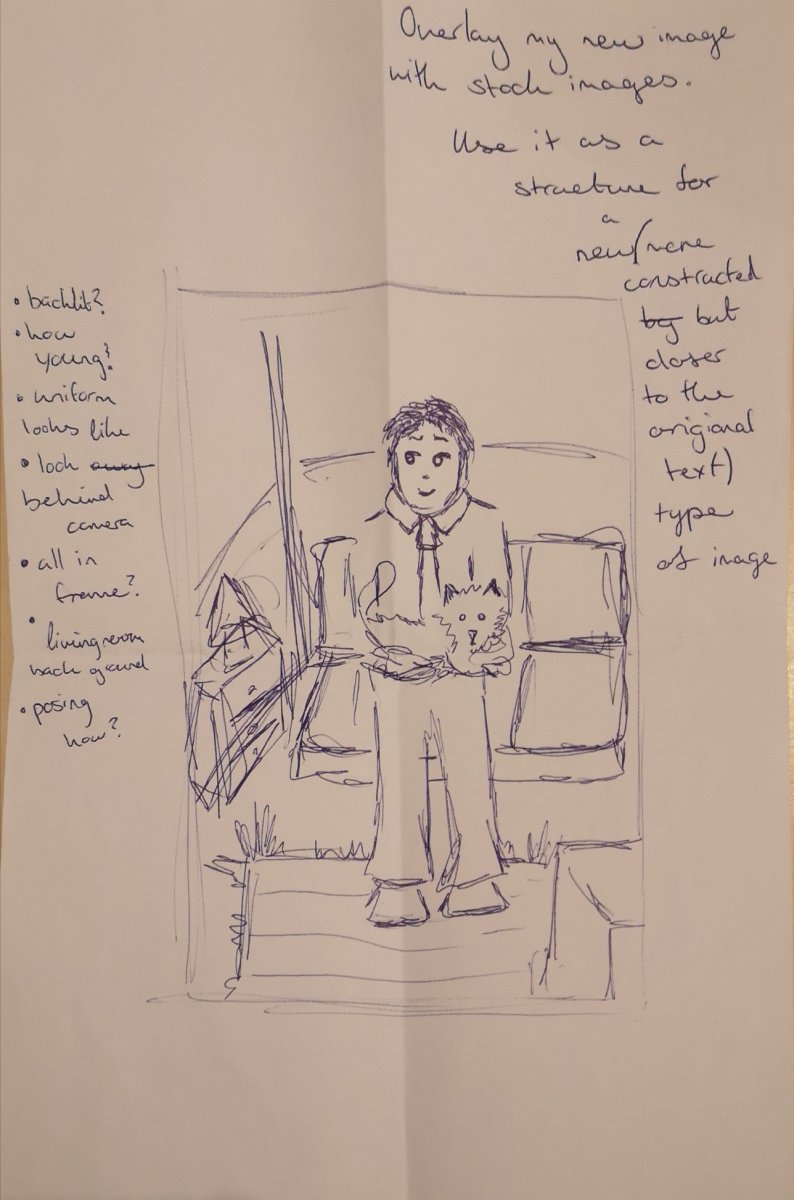 Overlay my new image
with stock images.
Use it as a
structure for
a
new/more
constracted
by but
closer
to the
origional
text)
type
of image
• backlit?
• how
young?
• uniform
looks like
• look away
behind
camera
• all in
frame?
• livingroom
back ground
• posing
how?